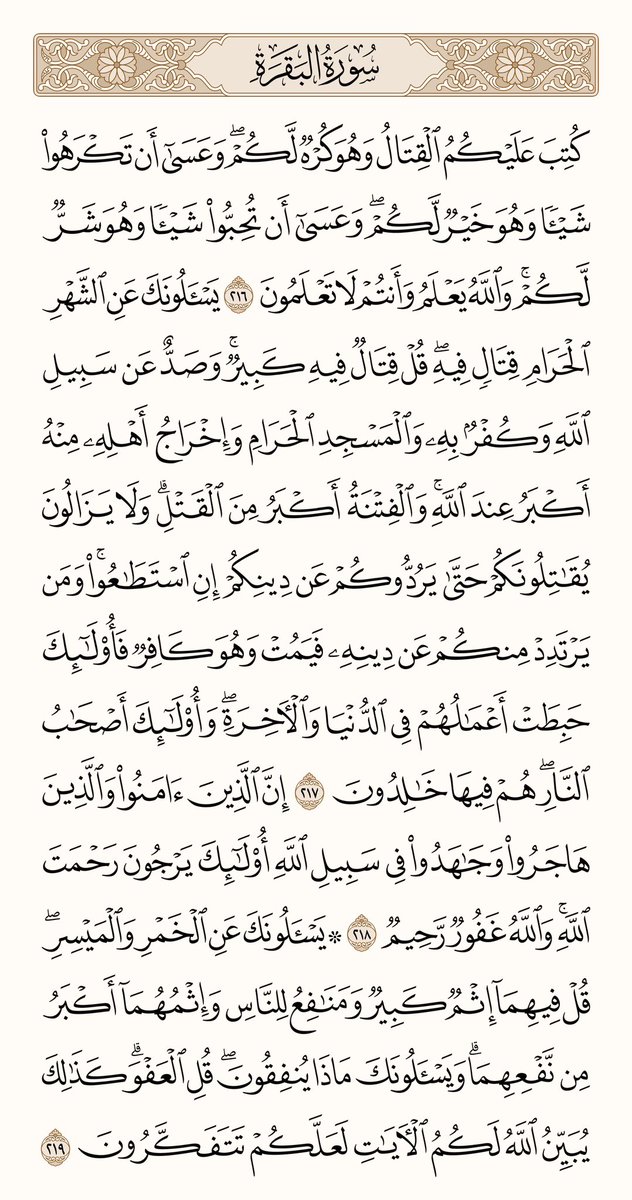 سُورَةُ البَقَرَةِ
كُتِبَ عَلَيْكُمُ ٱلْقِتَالُ وَهُوَ كُرْهٌ لَّكُمْ ۖ وَعَسَىٰٓ أَن تَكْرَهُوا۟
شَيْـًٔا وَهُوَ خَيْرٌ لَّكُمْ ۖ وَعَسَىٰٓ أَن تُحِبُّوا۟ شَيْـًٔا وَهُوَ شَرٌّ
لَّكُمْ ۗ وَٱللَّهُ يَعْلَمُ وَأَنتُمْ لَا تَعْلَمُونَ ٢١٦ يَسْـَٔلُونَكَ عَنِ ٱلشَّهْرِ
ٱلْحَرَامِ قِتَالٍ فِيهِ ۖ قُلْ قِتَالٌ فِيهِ كَبِيرٌ ۚ وَصَدٌّ عَن سَبِيلِ
ٱللَّهِ وَكُفْرٌۢ بِهِۦ وَٱلْمَسْجِدِ ٱلْحَرَامِ وَإِخْرَاجُ أَهْلِهِۦ مِنْهُ
أَكْبَرُ عِندَ ٱللَّهِ ۚ وَٱلْفِتْنَةُ أَكْبَرُ مِنَ ٱلْقَتْلِ ۗ وَلَا يَزَالُونَ
يُقَـٰتِلُونَكُمْ حَتَّىٰ يَرُدُّوكُمْ عَن دِينِكُمْ إِنِ ٱسْتَطَـٰعُوا۟ ۚ وَمَن
يَرْتَدِدْ مِنكُمْ عَن دِينِهِۦ فَيَمُتْ وَهُوَ كَافِرٌ فَأُو۟لَـٰٓئِكَ
حَبِطَتْ أَعْمَـٰلُهُمْ فِى ٱلدُّنْيَا وَٱلْـَٔاخِرَةِ ۖ وَأُو۟لَـٰٓئِكَ أَصْحَـٰبُ
ٱلنَّارِ ۖ هُمْ فِيهَا خَـٰلِدُونَ ٢١٧ إِنَّ ٱلَّذِينَ ءَامَنُوا۟ وَٱلَّذِينَ
هَاجَرُوا۟ وَجَـٰهَدُوا۟ فِى سَبِيلِ ٱللَّهِ أُو۟لَـٰٓئِكَ يَرْجُونَ رَحْمَتَ
ٱللَّهِ ۚ وَٱللَّهُ غَفُورٌ رَّحِيمٌ ٢١٨ ۞ يَسْـَٔلُونَكَ عَنِ ٱلْخَمْرِ وَٱلْمَيْسِرِ ۖ
قُلْ فِيهِمَآ إِثْمٌ كَبِيرٌ وَمَنَـٰفِعُ لِلنَّاسِ وَإِثْمُهُمَآ أَكْبَرُ
مِن نَّفْعِهِمَا ۗ وَيَسْـَٔلُونَكَ مَاذَا يُنفِقُونَ ۖ قُلِ ٱلْعَفْوَ ۗ كَذَٰلِكَ
يُبَيِّنُ ٱللَّهُ لَكُمُ ٱلْـَٔايَـٰتِ لَعَلَّكُمْ تَتَفَكَّرُونَ ٢١٩